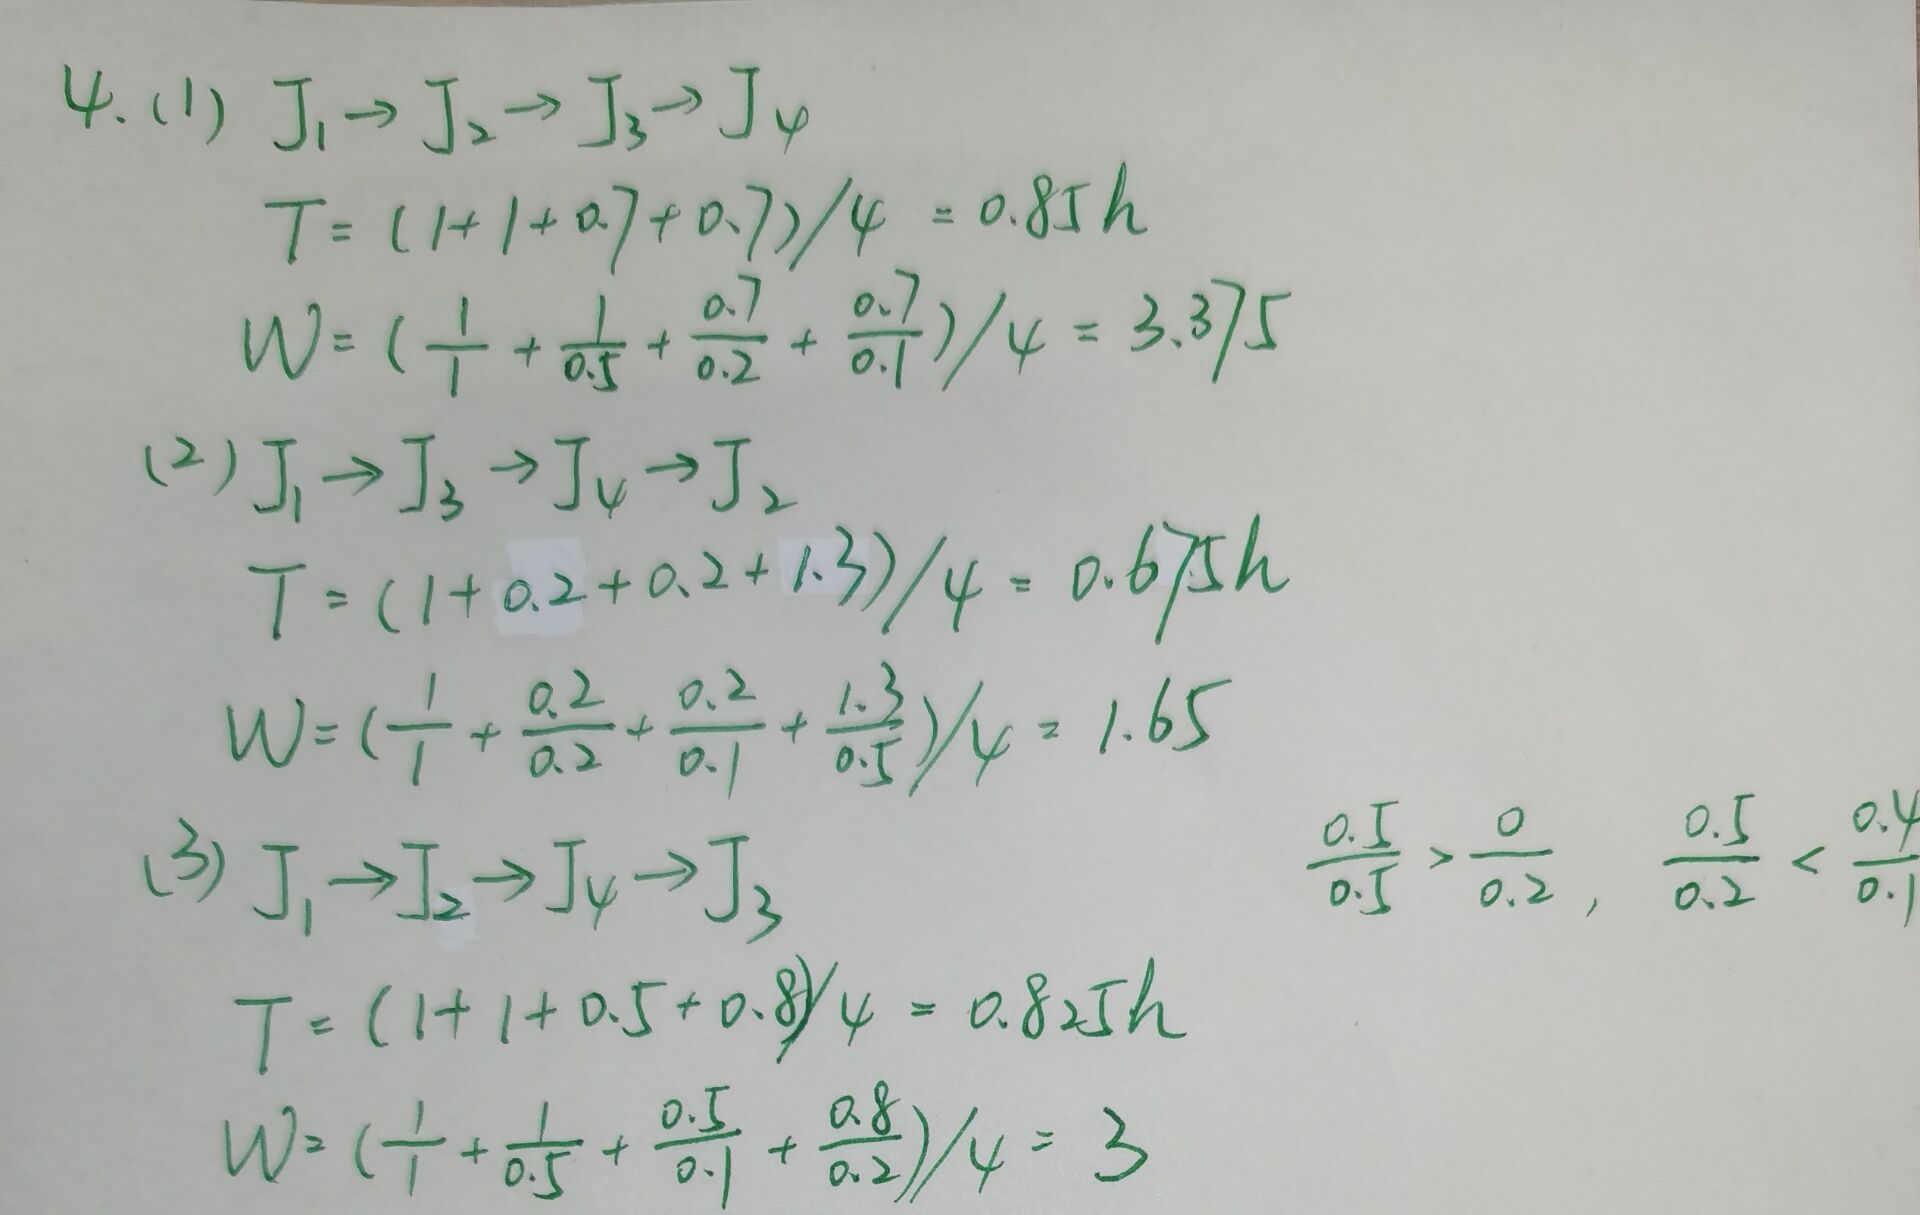 4. (1) J₁ → J₂ → J₃ → J₄
T = (1+1+0.7+0.7)/4 = 0.85h
W = (1/1 + 1/0.5 + 0.7/0.2 + 0.7/0.1)/4 = 3.375
(2) J₁ → J₃ → J₄ → J₂
T = (1+0.2+0.2+1.3)/4 = 0.675h
W = (1/1 + 0.2/0.2 + 0.2/0.1 + 1.3/0.5)/4 = 1.65
(3) J₁ → J₂ → J₄ → J₃
0.5/0.5 > 0/0.2, 0.5/0.2 < 0.4/0.1
T = (1+1+0.5+0.8)/4 = 0.825h
W = (1/1 + 1/0.5 + 0.5/0.1 + 0.8/0.2)/4 = 3